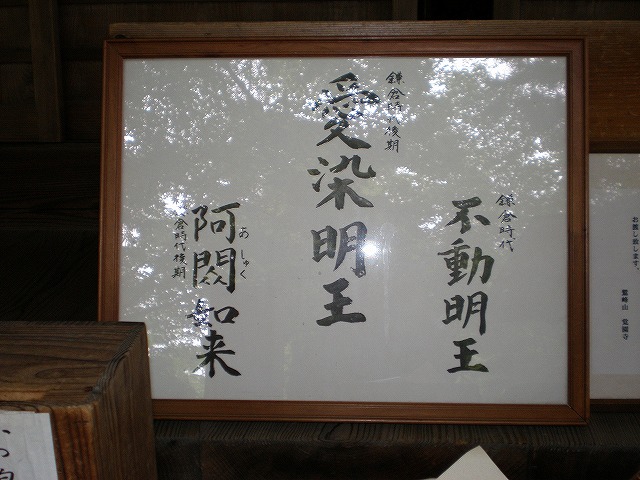 鎌倉時代
不動明王
鎌倉時代後期
愛染明王
阿閦如来
あしゅく
倉時代後期
お渡し致します。
鷲峰山 覚園寺